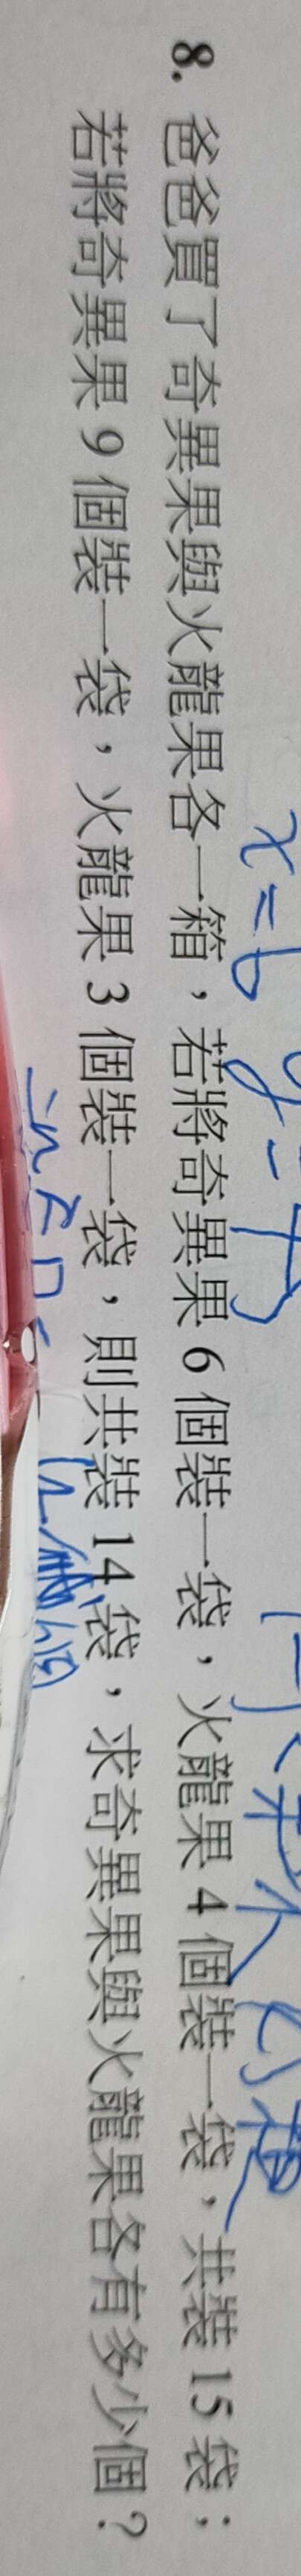 8. 爸爸買了奇異果與火龍果各一箱，若將奇異果 6 個裝一袋，火龍果 4 個裝一袋，共裝 15 袋；
若將奇異果 9 個裝一袋，火龍果 3 個裝一袋，則共裝 14 袋，求奇異果與火龍果各有多少個？